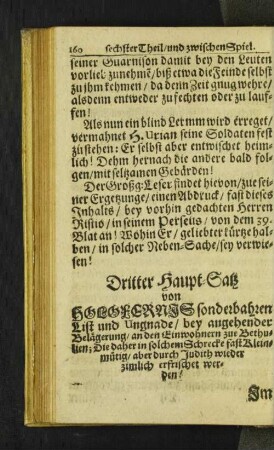 160 sechster Theil/und zwischen Spiel.
seiner Guarnison damit bey den Leuten
vorlieb zunehmē/ biß etwa die Feinde selbst
zu jhm kehmen/ da denn Zeit gnug wehre/
alsdenn entweder zu fechten oder zu lauf-
fen!
Als nun ein blind Lermm wird erreget/
vermahnet H. Urian seine Soldaten fest
zu stehen: Er selbst aber entwischet heim-
lich! Dehm hernach die andere bald fol-
gen/mit seltzamen Gebärden!
Der Großg: Leser findet hievon/zue sei-
ner Ergetzunge/einen Abdruck/ fast dieses
Inhalts/ bey vorhin gedachten Herren
Ristio/ in seinem Perseus/ von dem 39.
Blat an! Wohin Er/ geliebter kürtze hal-
ben/ in solcher Neben-Sache/sey verwie-
sen!
Dritter Haupt-Satz
von
HOLOFERNIS sonderbahren
List und Ungnade/ bey angehender
Belägerung/ an den Einwohnern zue Bethu-
lien; Die daher in solchem Schrecke fast Klein-
mütig/ aber durch Judith wieder
zimlich erfrischet wer-
den!
Im